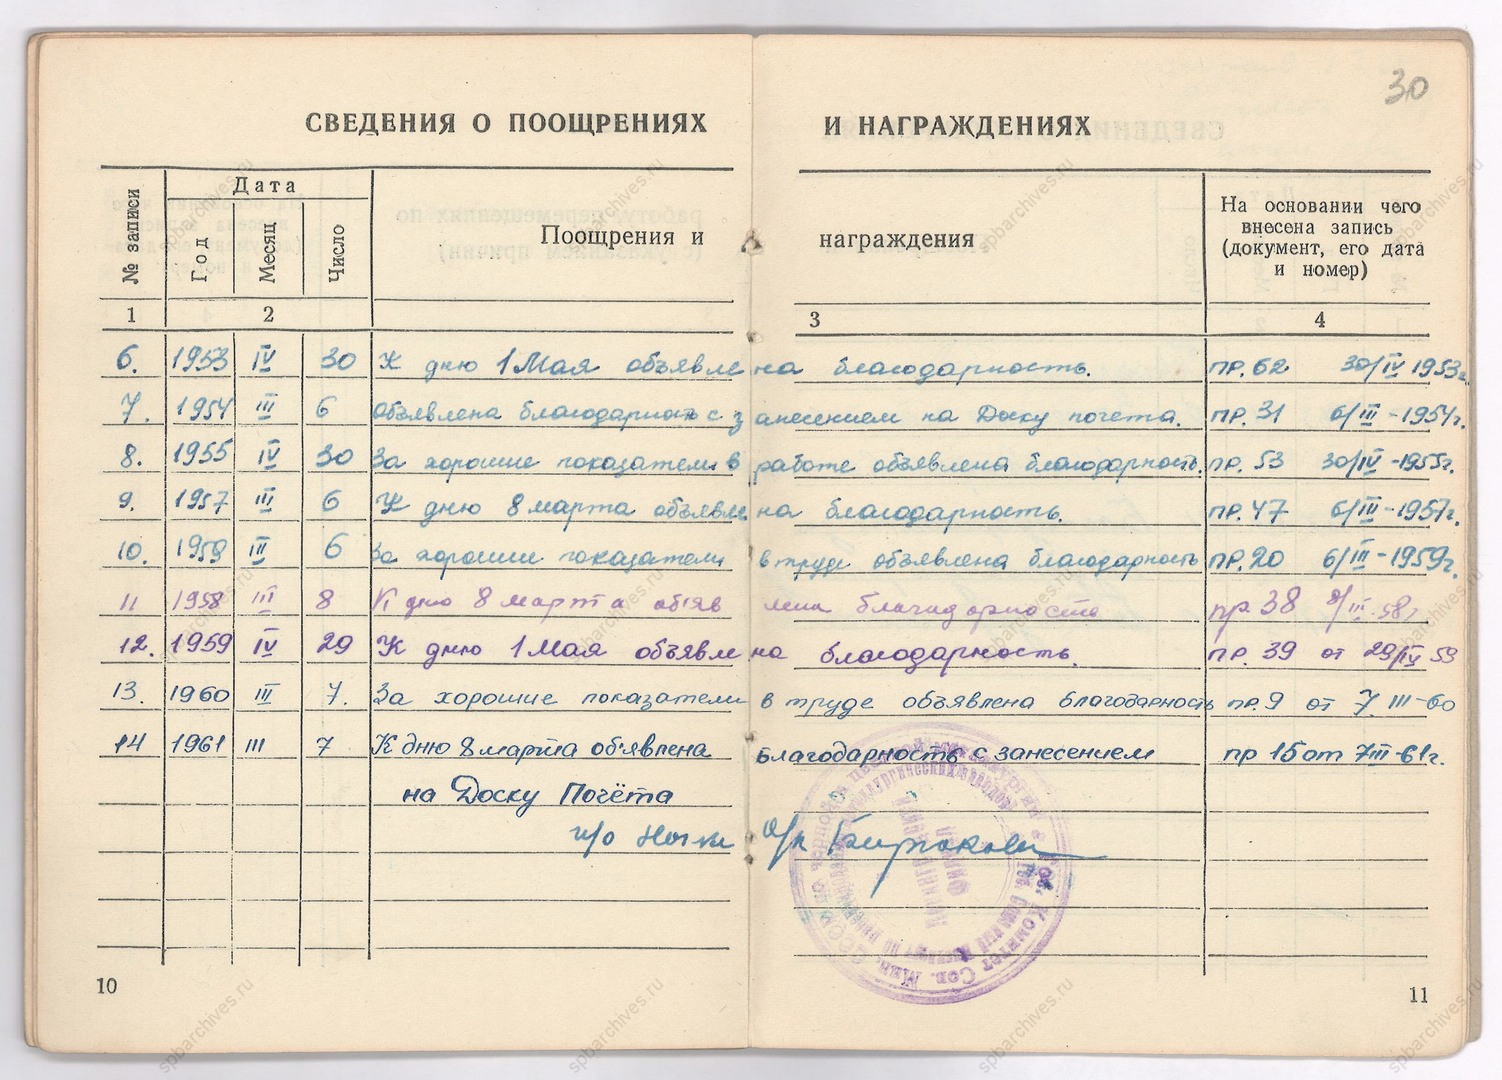 30
СВЕДЕНИЯ О ПООЩРЕНИЯХ И НАГРАЖДЕНИЯХ
№ записи Дата Год Месяц Число Поощрения и награждения На основании чего внесена запись (документ, его дата и номер)
1 2 3 4
6. 1953 IV 30 К дню 1 Мая объявлена благодарность. пр. 62 30/IV 1953г.
7. 1954 III 6 Объявлена благодарность с занесением на Доску почета. пр. 31 6/III-1954г.
8. 1955 IV 30 За хорошие показатели в работе объявлена благодарность. пр. 53 30/IV-1955г.
9. 1957 III 6 К дню 8 марта объявлена благодарность. пр. 47 6/III-1957г.
10. 1959 III 6 За хорошие показатели в труде объявлена благодарность пр. 20 6/III-1959г.
11 1958 III 8 К дню 8 марта объявлена благодарность пр. 38 8/III.58г
12. 1959 IV 29 К дню 1 Мая объявлена благодарность. пр. 39 от 29/IV 59
13. 1960 III 7. За хорошие показатели в труде объявлена благодарность пр. 9 от 7 III-60
14 1961 III 7 К дню 8 марта объявлена благодарность с занесением пр 15 от 7 III-61г.
на Доску Почёта
о/к
Комитет Сов. Мин.
10
11
spbarchives.ru